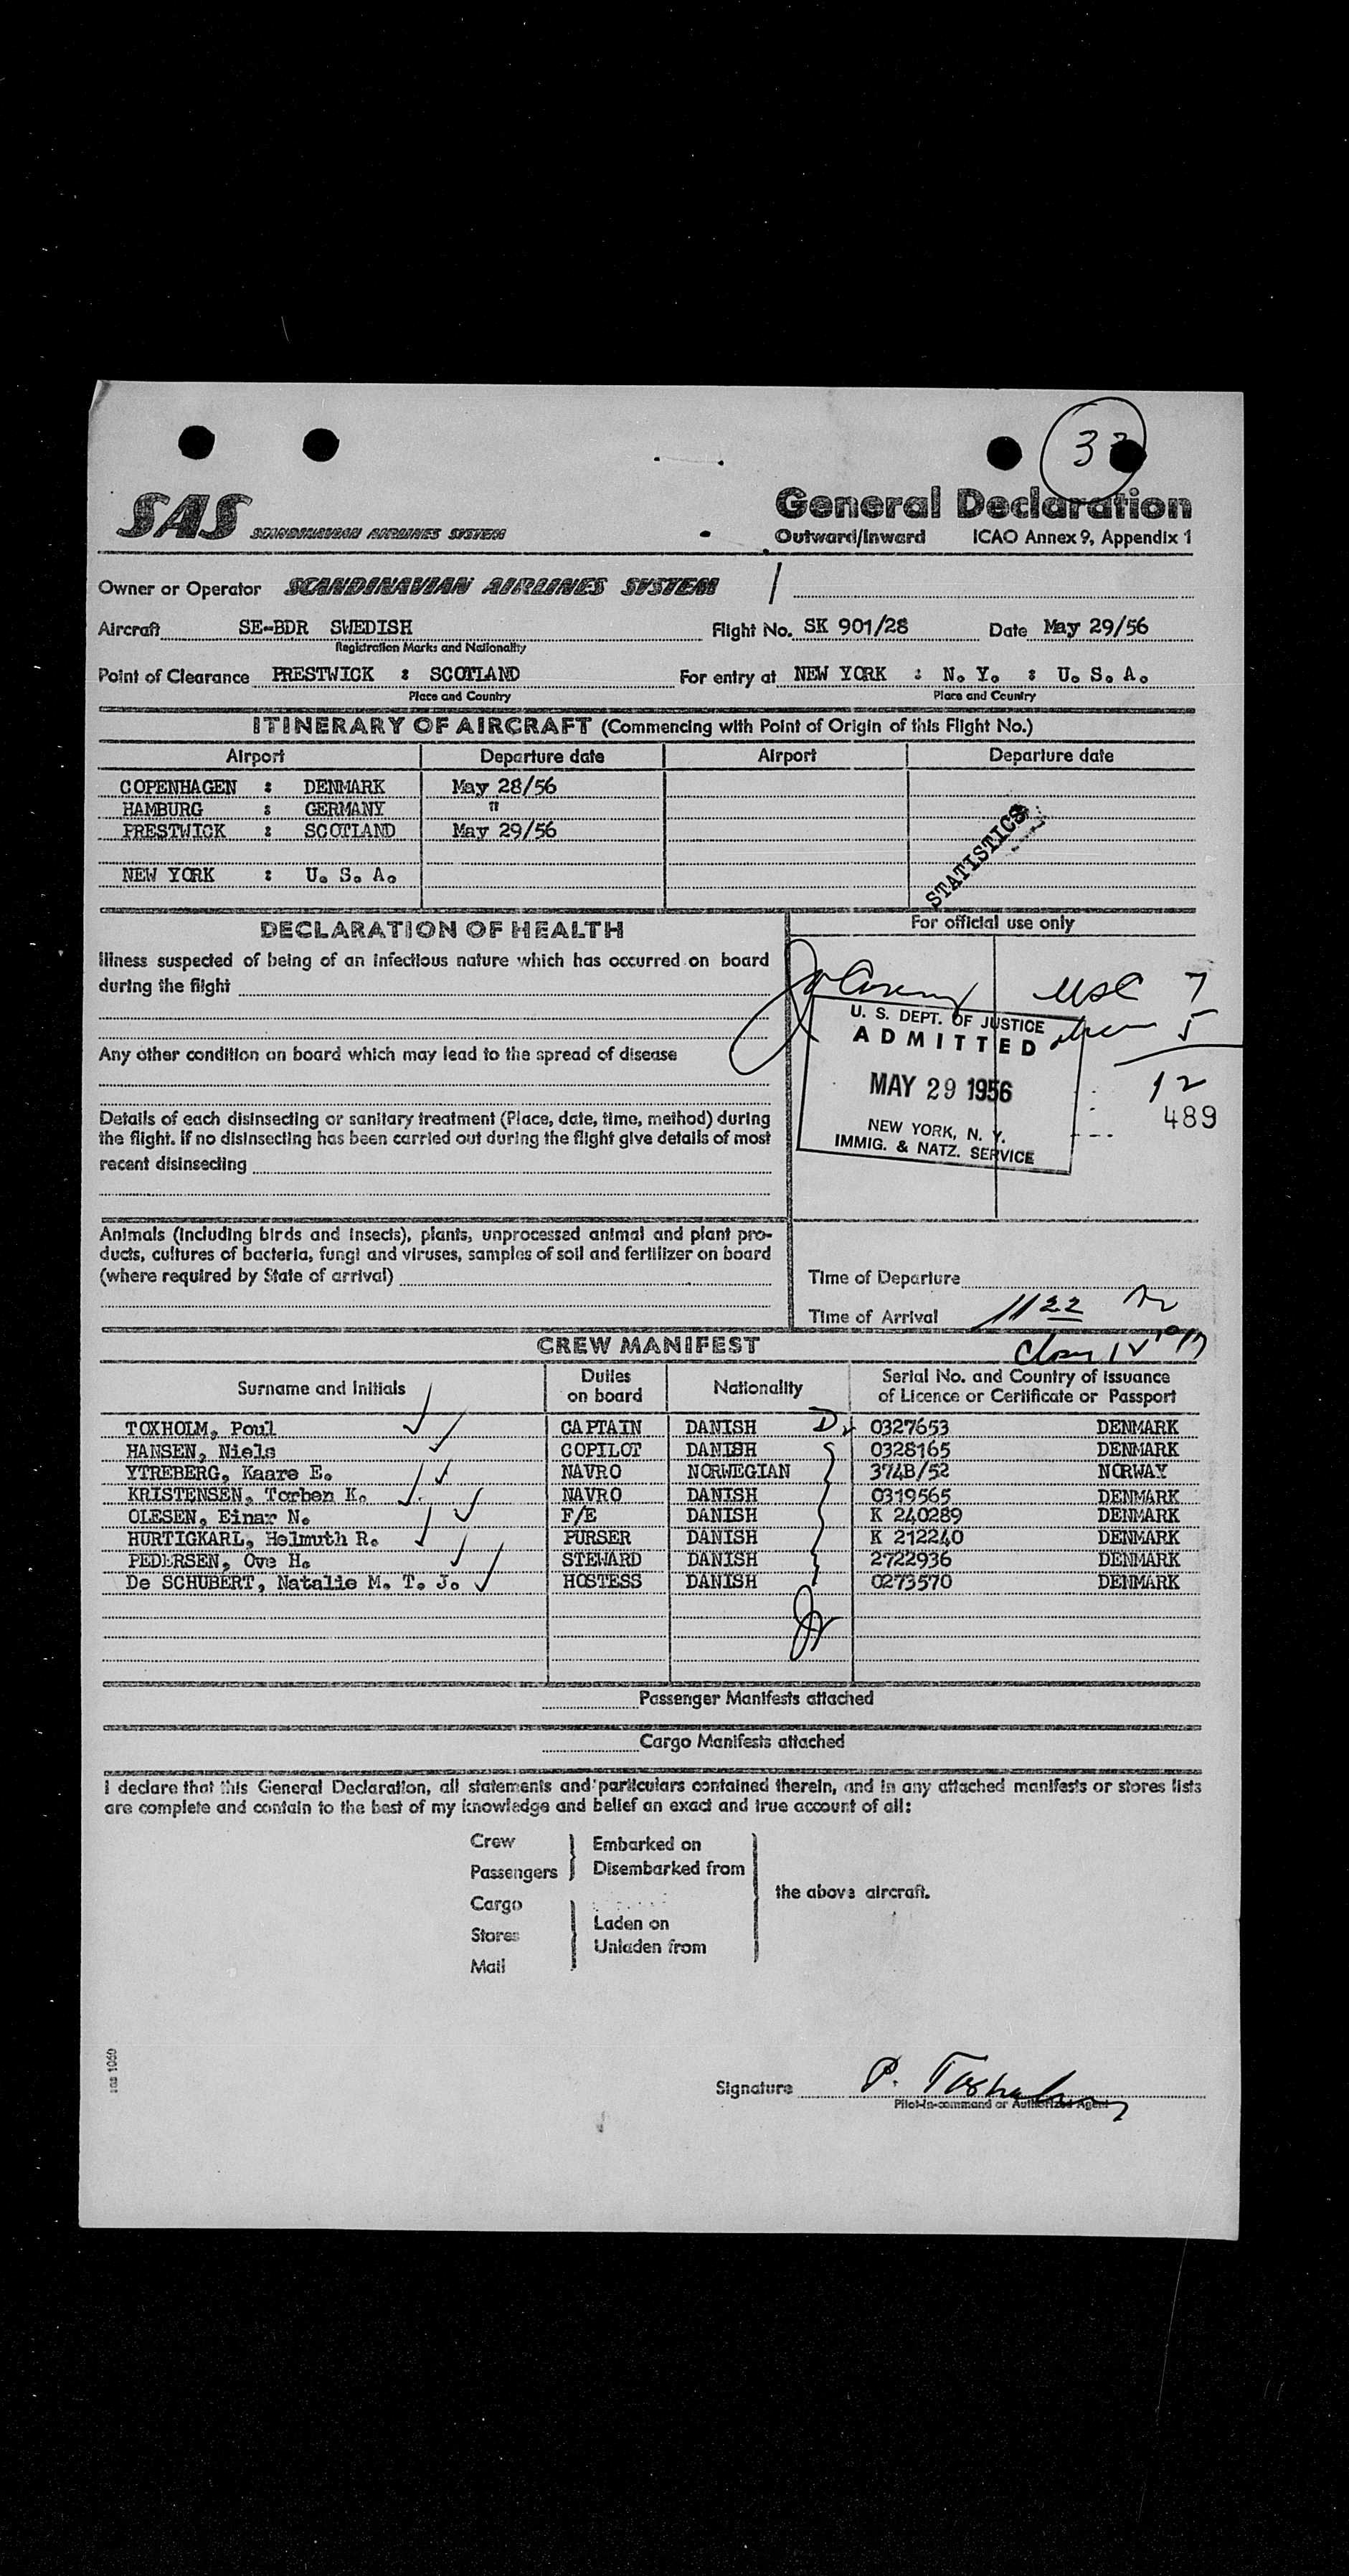 SAS SCANDINAVIAN AIRLINES SYSTEM
General Declaration
Outward/Inward ICAO Annex 9, Appendix 1
Owner or Operator SCANDINAVIAN AIRLINES SYSTEM
Aircraft SE-BDR SWEDISH Flight No. SK 901/28 Date May 29/56
Registration Marks and Nationality
Point of Clearance PRESTWICK : SCOTLAND For entry at NEW YORK : N. Y. : U. S. A.
Place and Country Place and Country
ITINERARY OF AIRCRAFT (Commencing with Point of Origin of this Flight No.)
Airport Departure date Airport Departure date
COPENHAGEN : DENMARK May 28/56
HAMBURG : GERMANY "
PRESTWICK : SCOTLAND May 29/56
NEW YORK : U. S. A.
STATISTICS
DECLARATION OF HEALTH
Illness suspected of being of an infectious nature which has occurred on board
during the flight
Any other condition on board which may lead to the spread of disease
Details of each disinsecting or sanitary treatment (Place, date, time, method) during
the flight. If no disinsecting has been carried out during the flight give details of most
recent disinsecting
Animals (including birds and insects), plants, unprocessed animal and plant pro-
ducts, cultures of bacteria, fungi and viruses, samples of soil and fertilizer on board
(where required by State of arrival)
For official use only
USC 7
5
12
489
U. S. DEPT. OF JUSTICE
ADMITTED
MAY 29 1956
NEW YORK, N. Y.
IMMIG. & NATZ. SERVICE
Time of Departure
Time of Arrival 1122
CREW MANIFEST
Surname and Initials Duties on board Nationality Serial No. and Country of issuance of Licence or Certificate or Passport
TOXHOLM, Poul CAPTAIN DANISH 0327653 DENMARK
HANSEN, Niels COPILOT DANISH 0328165 DENMARK
YTREBERG, Kaare E. NAVRO NORWEGIAN 374B/52 NORWAY
KRISTENSEN, Torben K. NAVRO DANISH 0319565 DENMARK
OLESEN, Einar N. F/E DANISH K 240289 DENMARK
HURTIGKARL, Helmuth R. PURSER DANISH K 212240 DENMARK
PEDERSEN, Ove H. STEWARD DANISH 2722936 DENMARK
De SCHUBERT, Natalie M. T. J. HOSTESS DANISH 0273570 DENMARK
Passenger Manifests attached
Cargo Manifests attached
I declare that this General Declaration, all statements and particulars contained therein, and in any attached manifests or stores lists
are complete and contain to the best of my knowledge and belief an exact and true account of all:
Crew
Passengers
Embarked on
Disembarked from
Cargo
Stores
Mail
Laden on
Unladen from
the above aircraft.
Signature P. Toxholm
Pilot-in-command or Authorized Agent